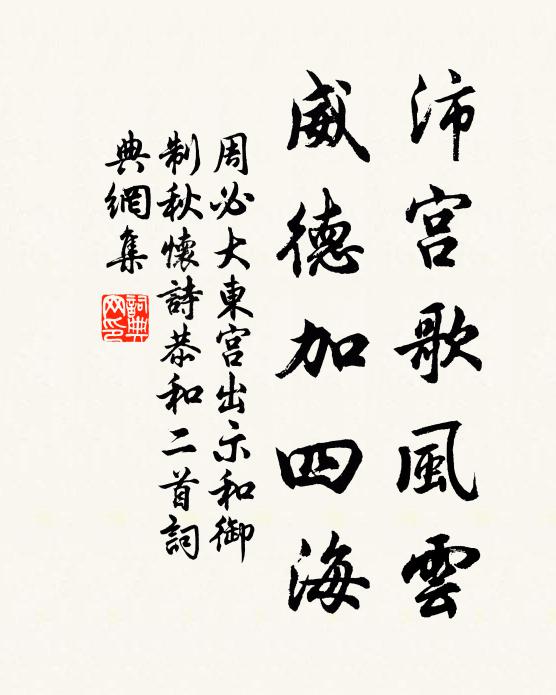 沛宮歌風雲
威德加四海
周必大東宮出示和御
制秋懷詩恭和二首詞
典網集
詞典网印